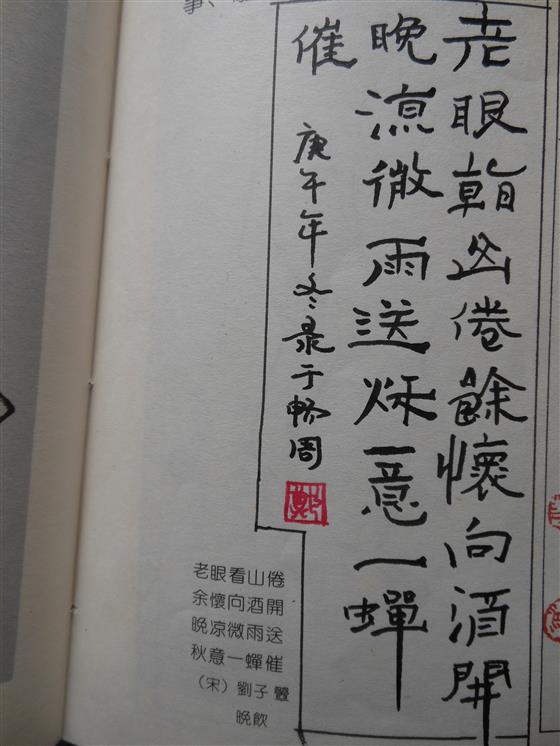 老眼看山倦餘懷向酒開
晚涼微雨送秋意一蟬
催
庚午年冬录于畅周
老眼看山倦
余懷向酒開
晚凉微雨送
秋意一蟬催
（宋）劉子翬
晚飲